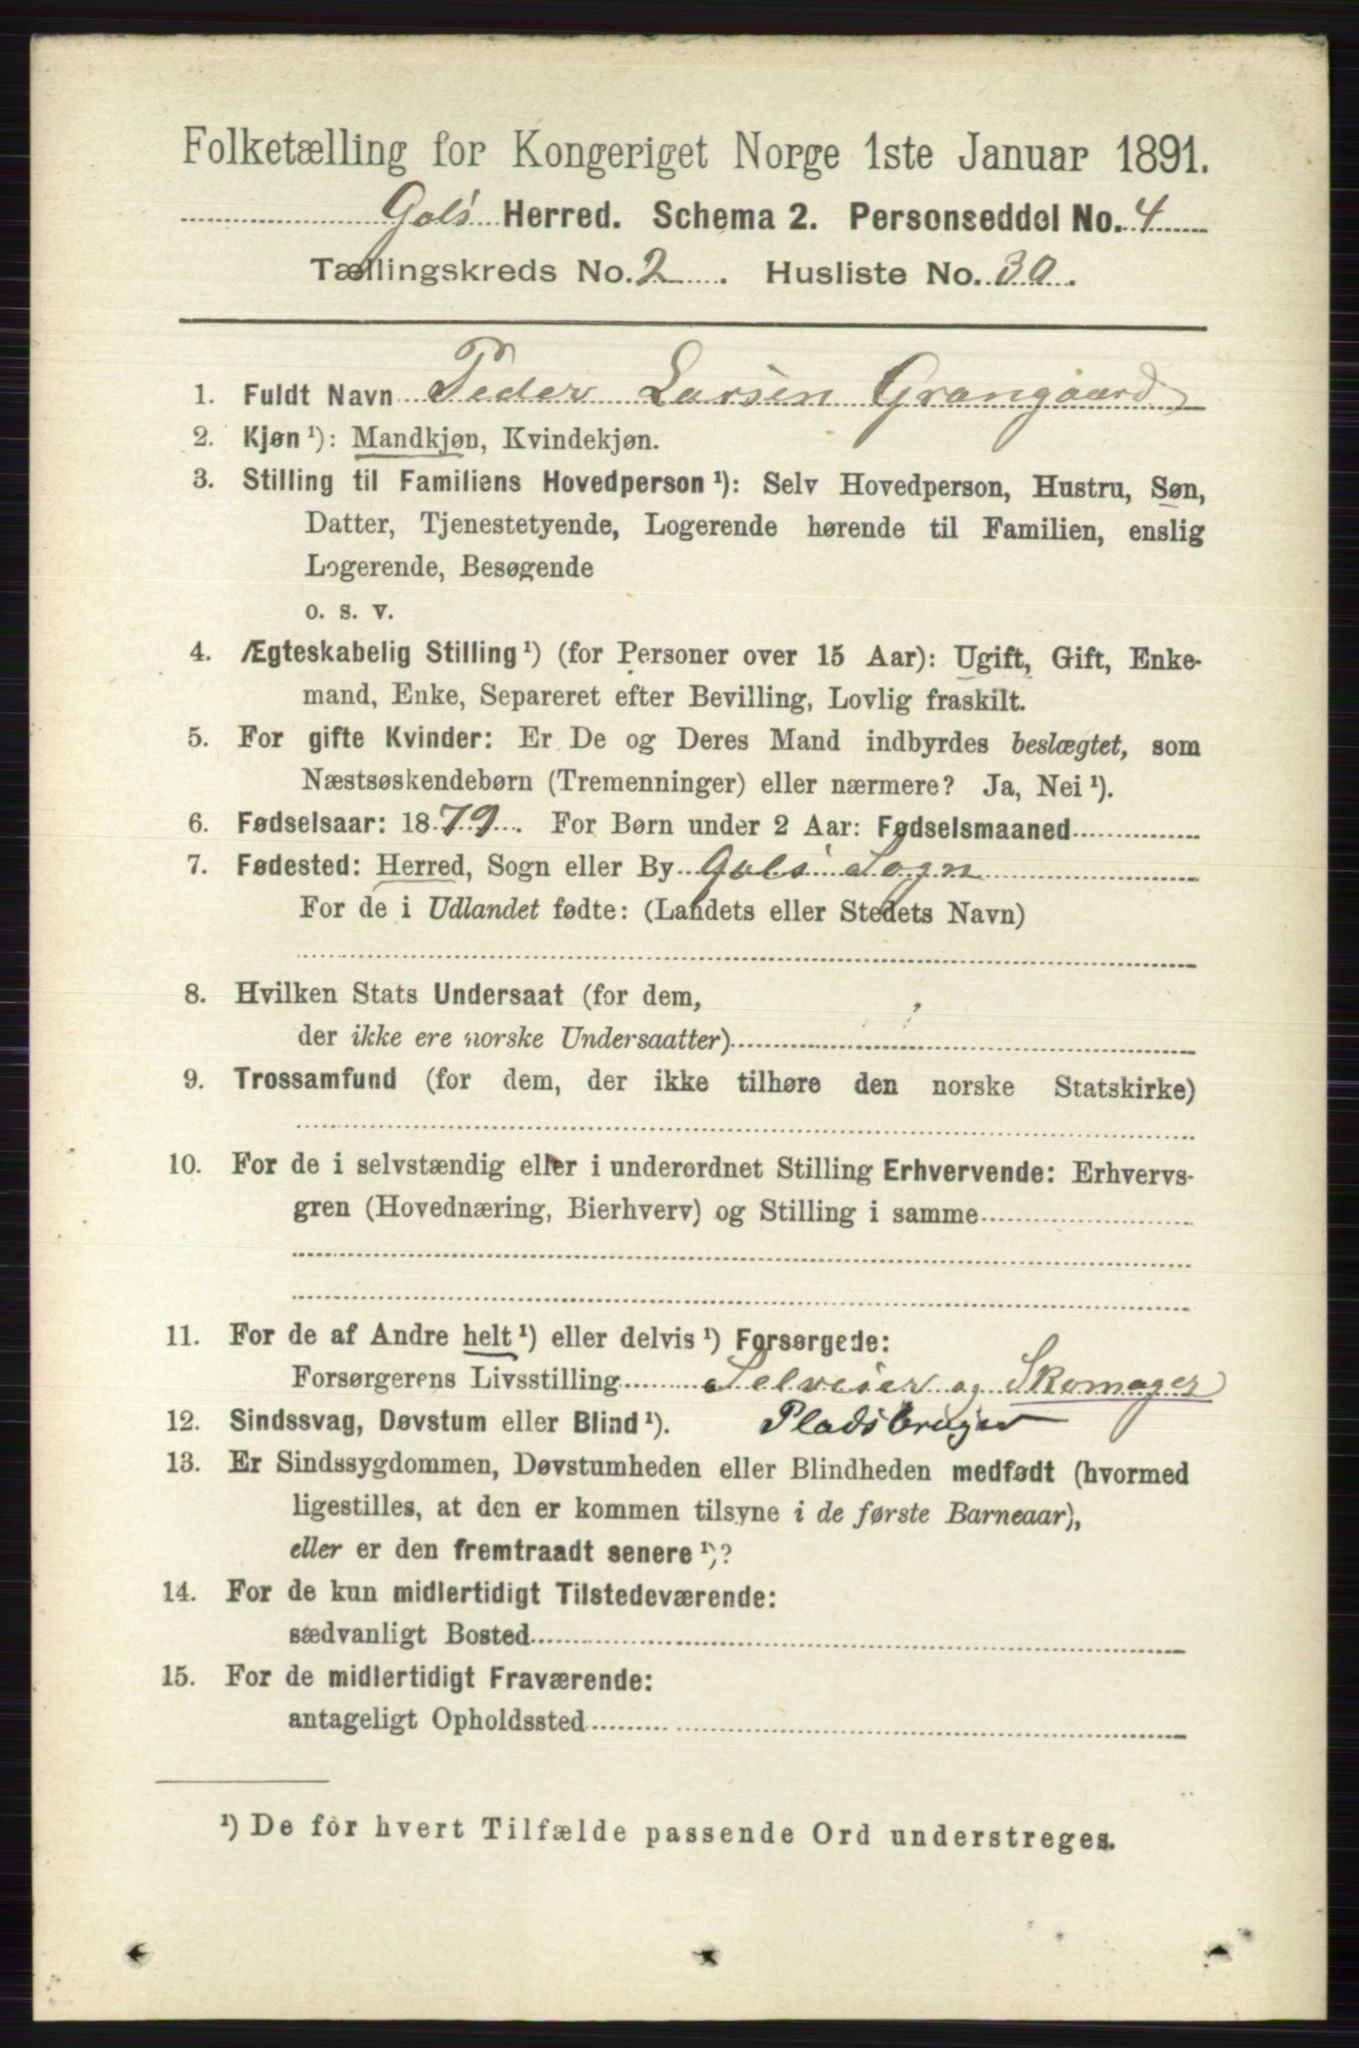 Folketælling for Kongeriget Norge 1ste Januar 1891.
Gols Herred. Schema 2. Personseddel No. 4
Tællingskreds No. 2. Husliste No. 30.
1. Fuldt Navn Peder Larsen Grangaard
2. Kjøn ¹): Mandkjøn, Kvindekjøn.
3. Stilling til Familiens Hovedperson ¹): Selv Hovedperson, Hustru, Søn,
Datter, Tjenestetyende, Logerende hørende til Familien, enslig
Logerende, Besøgende
o. s. v.
4. Ægteskabelig Stilling ¹) (for Personer over 15 Aar): Ugift, Gift, Enke-
mand, Enke, Separeret efter Bevilling, Lovlig fraskilt.
5. For gifte Kvinder: Er De og Deres Mand indbyrdes beslægtet, som
Næstsøskendebørn (Tremenninger) eller nærmere? Ja, Nei ¹).
6. Fødselsaar: 1879. For Børn under 2 Aar: Fødselsmaaned
7. Fødested: Herred, Sogn eller By Gols Sogn
For de i Udlandet fødte: (Landets eller Stedets Navn)
8. Hvilken Stats Undersaat (for dem,
der ikke ere norske Undersaatter)
9. Trossamfund (for dem, der ikke tilhøre den norske Statskirke)
10. For de i selvstændig eller i underordnet Stilling Erhvervende: Erhvervs-
gren (Hovednæring, Bierhverv) og Stilling i samme
11. For de af Andre helt ¹) eller delvis ¹) Forsørgede:
Forsørgerens Livsstilling Selveier og Skomager
12. Sindssvag, Døvstum eller Blind ¹). Pladsbruger
13. Er Sindssygdommen, Døvstumheden eller Blindheden medfødt (hvormed
ligestilles, at den er kommen tilsyne i de første Barneaar),
eller er den fremtraadt senere ¹)?
14. For de kun midlertidigt Tilstedeværende:
sædvanligt Bosted
15. For de midlertidigt Fraværende:
antageligt Opholdssted
¹) De for hvert Tilfælde passende Ord understreges.